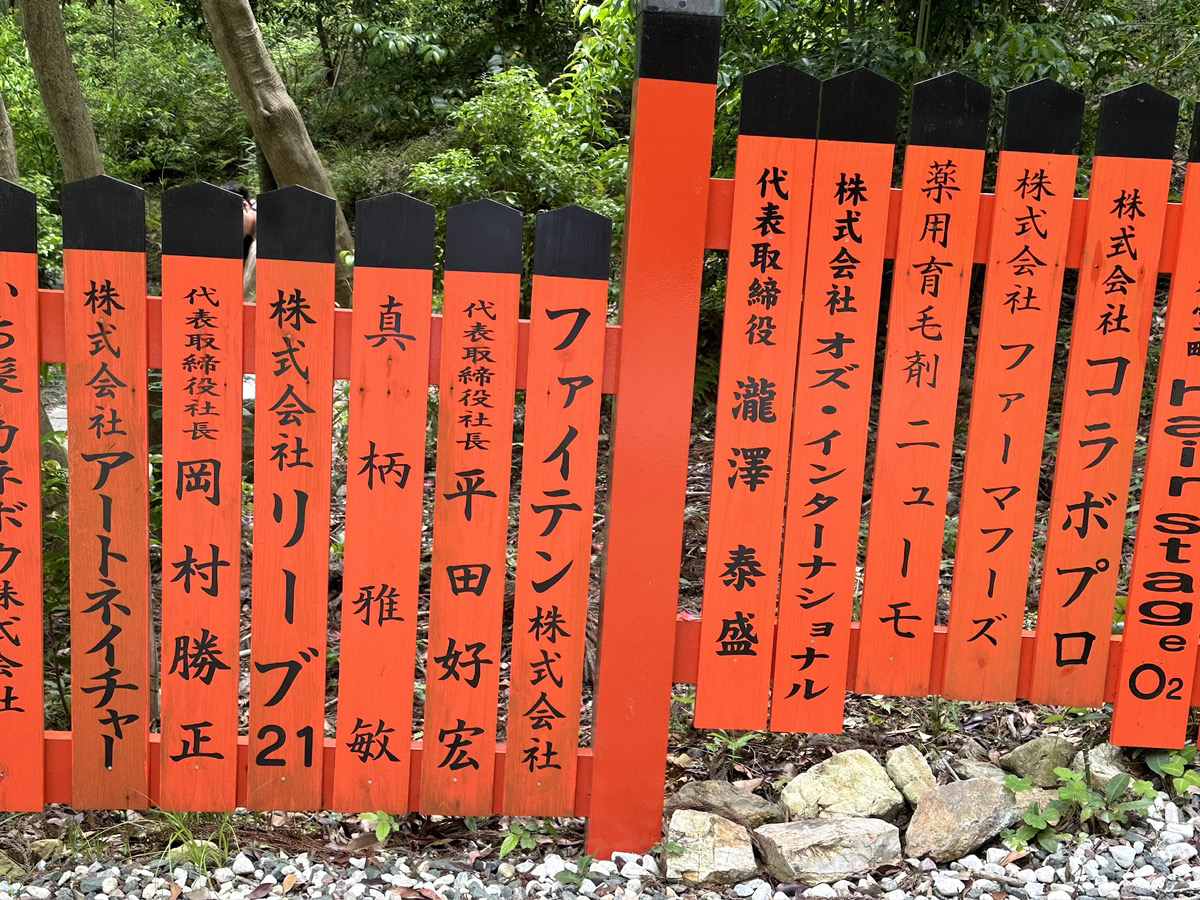 hair instage O2
株式会社 コラボプロ
株式会社 ファーマフーズ
薬用育毛剤 ニューモ
株式会社 オズ・インターナショナル
代表取締役 瀧澤 泰盛
ファイテン 株式会社
代表取締役社長 平田好宏
真柄雅敏
株式会社 リーブ21
代表取締役社長 岡村勝正
株式会社 アートネイチャー
いち髪 カネボウ株式会社